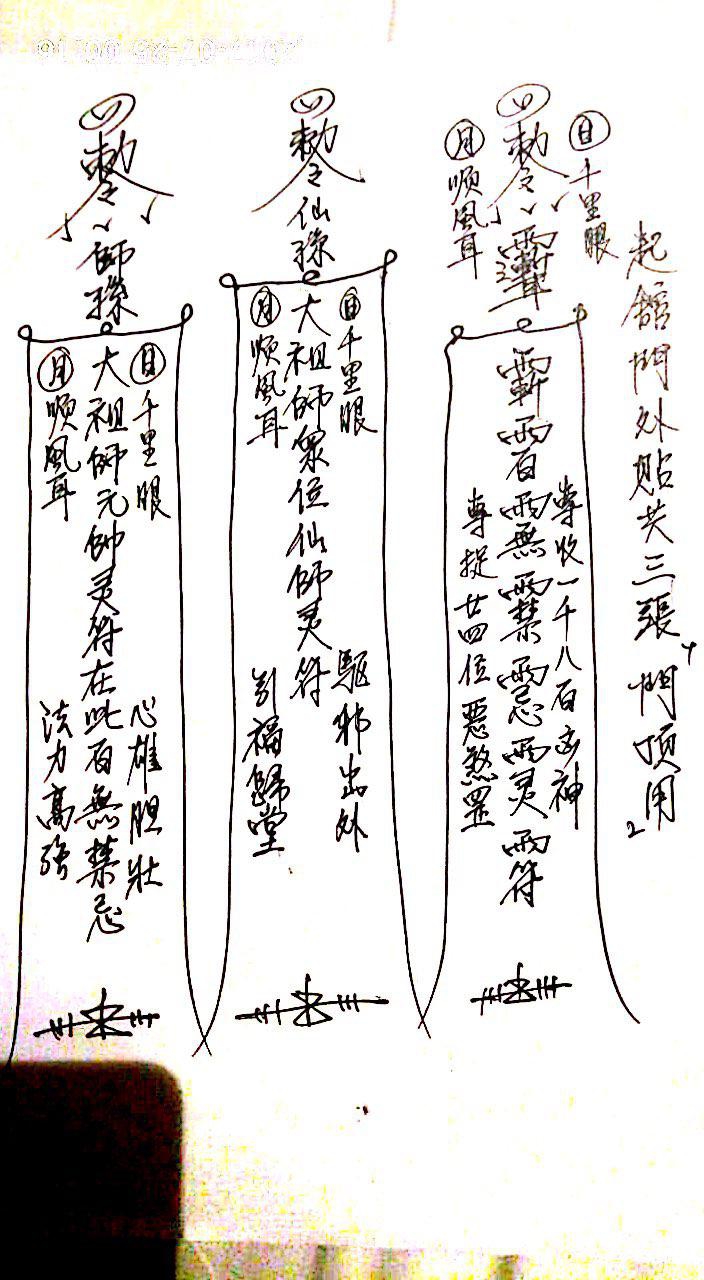 起館門外貼共三張門頂用
日千里眼
敕令
月順風耳
專收一千八百凶神
專捉廿四位惡煞罡
敕令仙
日千里眼
大祖師眾位仙師灵符
月順風耳
驅邪出外
引福歸堂
敕令師
日千里眼
大祖師元帥灵符在此百無禁忌
月順風耳
心雄胆壯
法力高強